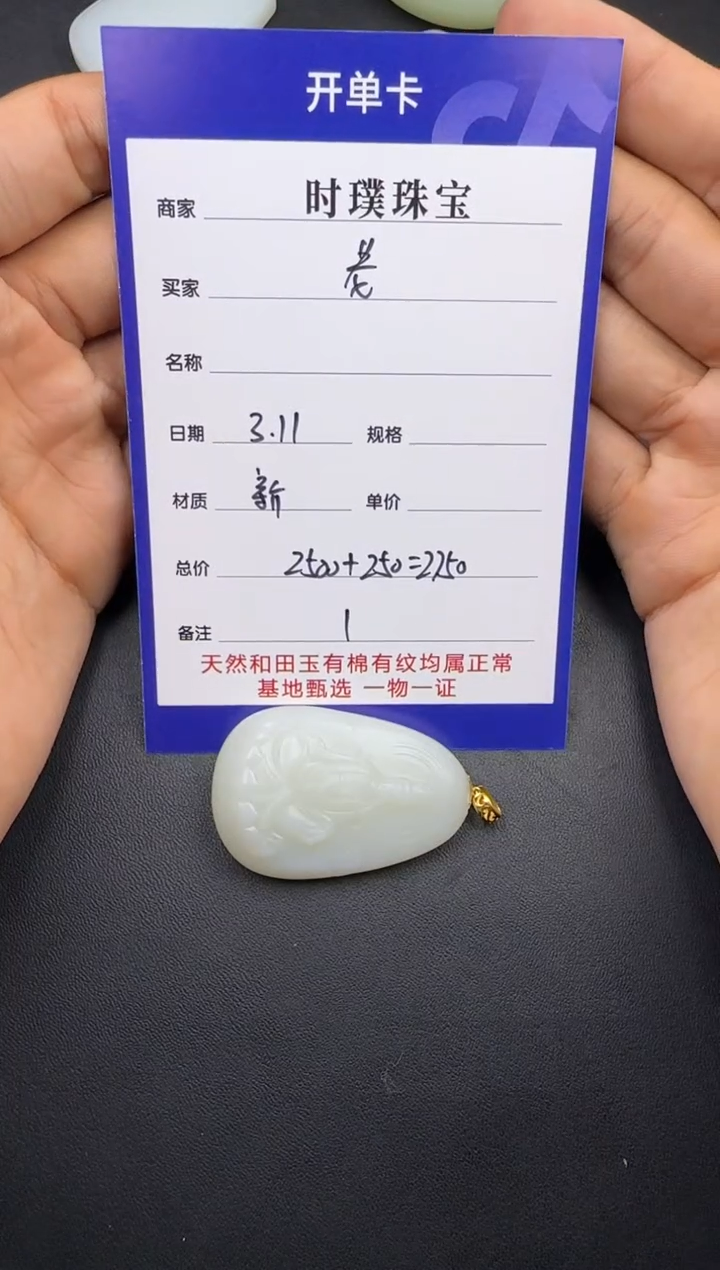 开单卡
商家 时璞珠宝
买家
名称
日期 3.11 规格
材质 新 单价
总价 2500+250=2750
备注 1
天然和田玉有棉有纹均属正常
基地甄选 一物一证